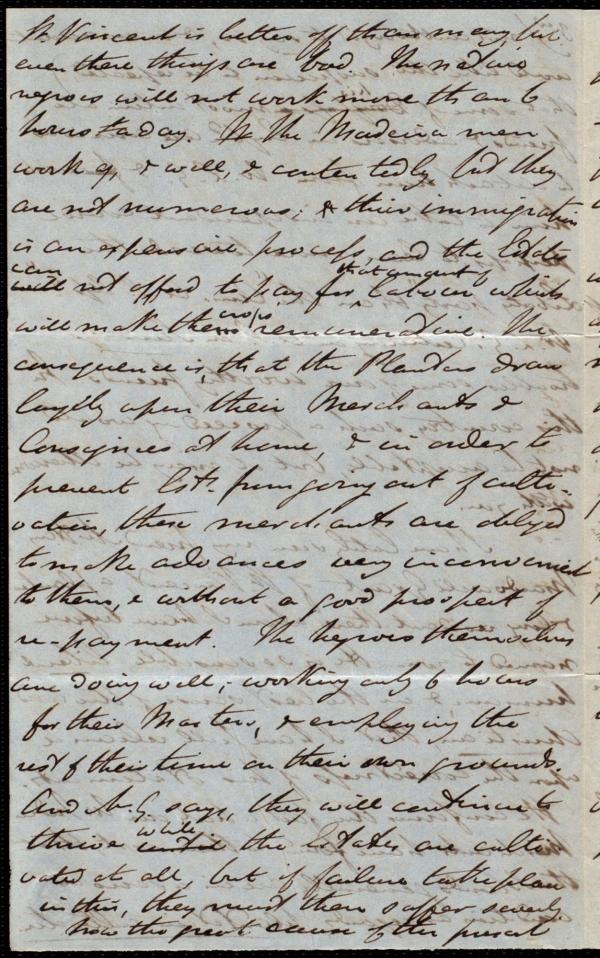 St. Vincent is better off than many but
even there things are bad. The native
negroes will not work more than 6
hours a day. The Madeira men
work, & well, & contentedly but they
are not numerous; & their immigration
is an expensive process, and the Estates
can
not afford to pay for that amount of labour which
will make the crops remunerative. The
consequence is, that the Planters draw
largely upon their Merchants &
Consignees at home, & in order to
prevent Ests. from going out of culti-
vation, these merchants are obliged
to make advances very inconvenient
to them, & without a good prospect of
re-payment. The negroes themselves
are doing well; working only 6 hours
for their Masters, & employing the
rest of their time on their own grounds.
And says, they will continue to
thrive while the Estates are culti-
vated at all, but if failure take place
in this, they must then suffer severely
Now the great cause of the present